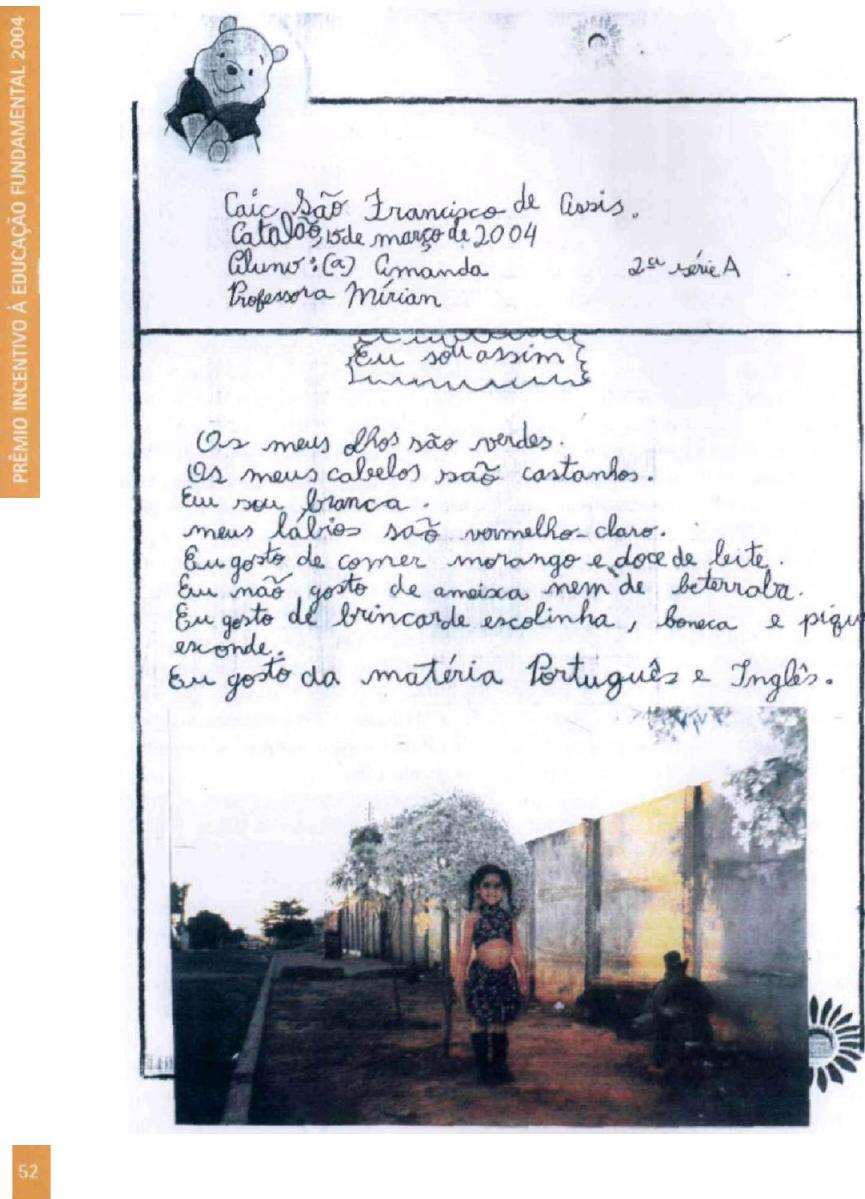 PRÊMIO INCENTIVO À EDUCAÇÃO FUNDAMENTAL 2004
Caic São Francisco de Assis.
Catalão, 15 de março de 2004
Aluno:(a) Amanda 2ª série A
Professora Mírian
Eu sou assim
Os meus olhos são verdes.
Os meus cabelos são castanhos.
Eu sou branca.
meus lábios são vermelho-claro.
Eu gosto de comer morango e doce de leite.
Eu não gosto de ameixa nem de beterraba.
Eu gosto de brincar de escolinha, boneca e piqu
esconde.
Eu gosto da matéria Português e Inglês.
52